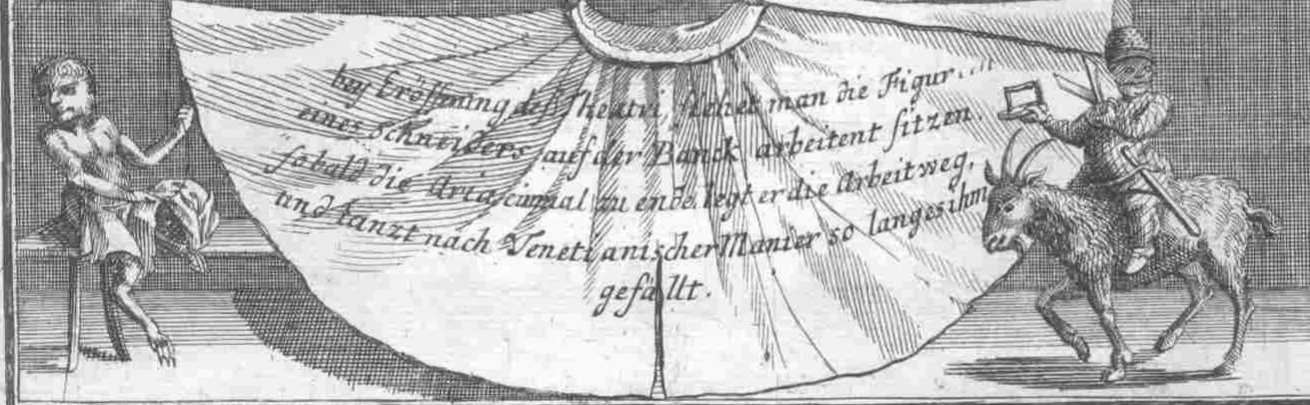 bey Eröffnung deß Theatri, siehet man die Figur
eines Schneiders auf der Banck arbeitent sitzen.
so bald die Aria einmal zu ende legt er die Arbeit weg,
und tanzt nach Venetianischer Manier so lang es ihm
gefällt.